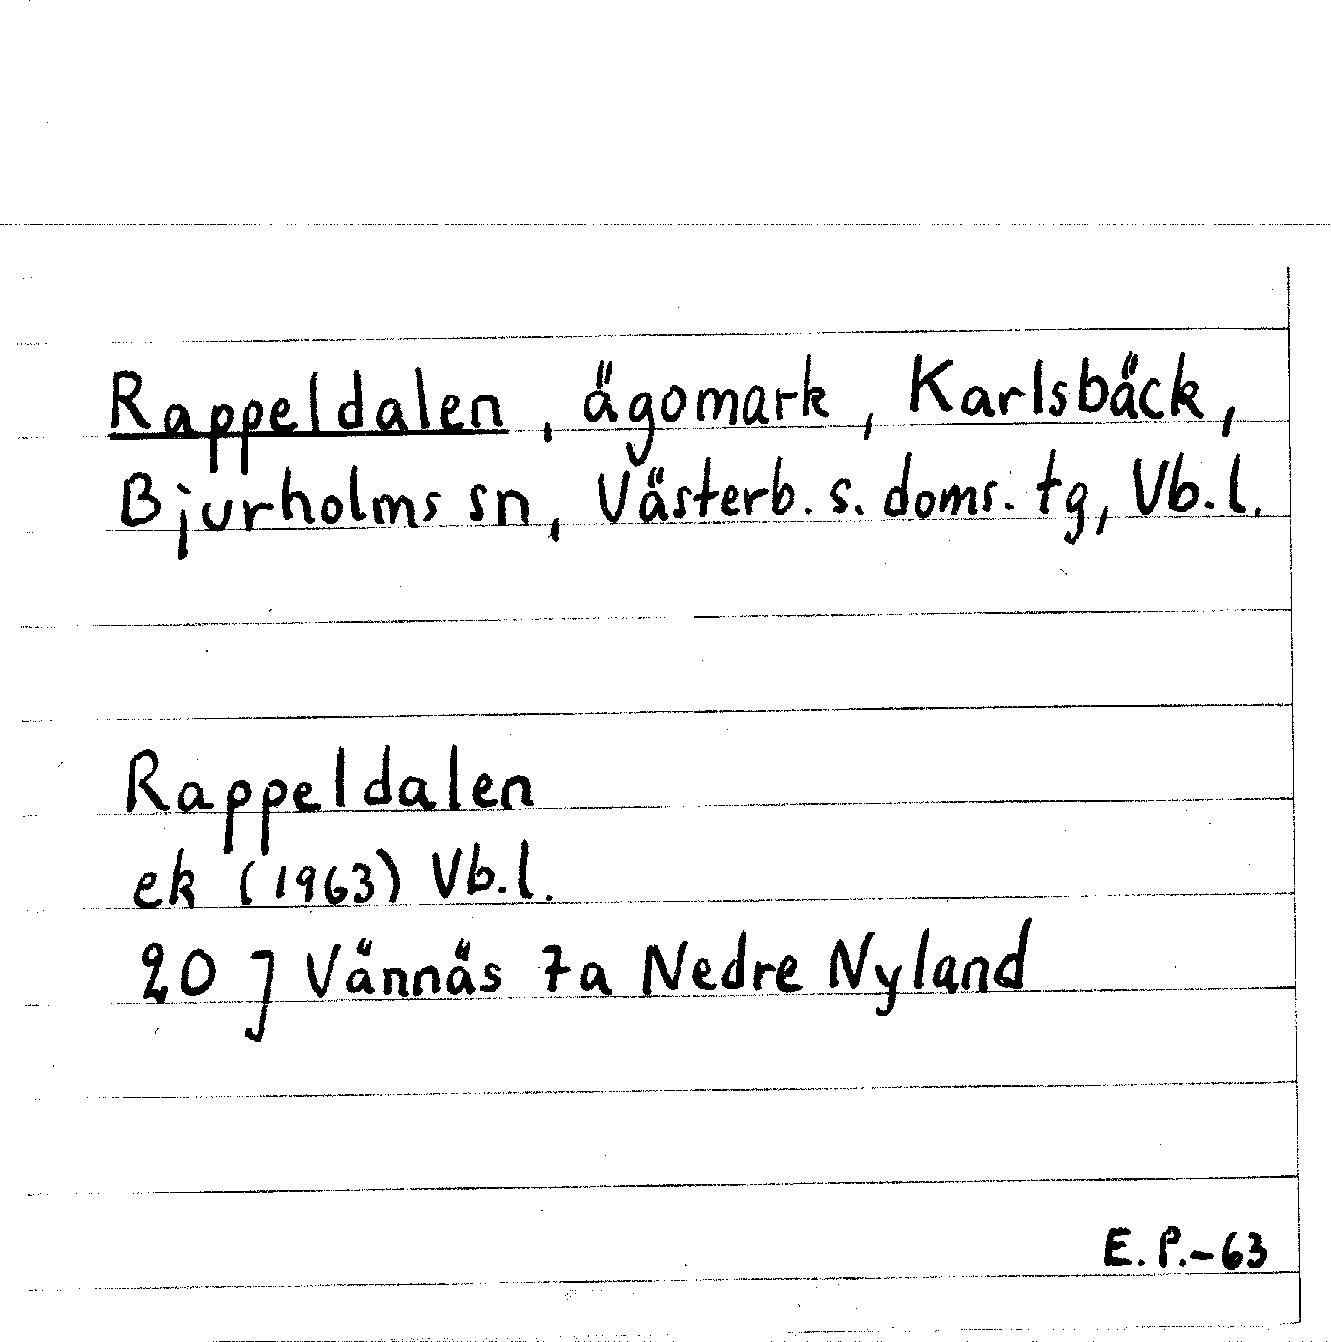 Rappeldalen, ägomark, Karlsbäck,
Bjurholms sn, Västerb. s. doms. tg, Vb.l.
Rappeldalen
ek (1963) Vb.l.
20 J Vännäs 7a Nedre Nyland
E.P.-63